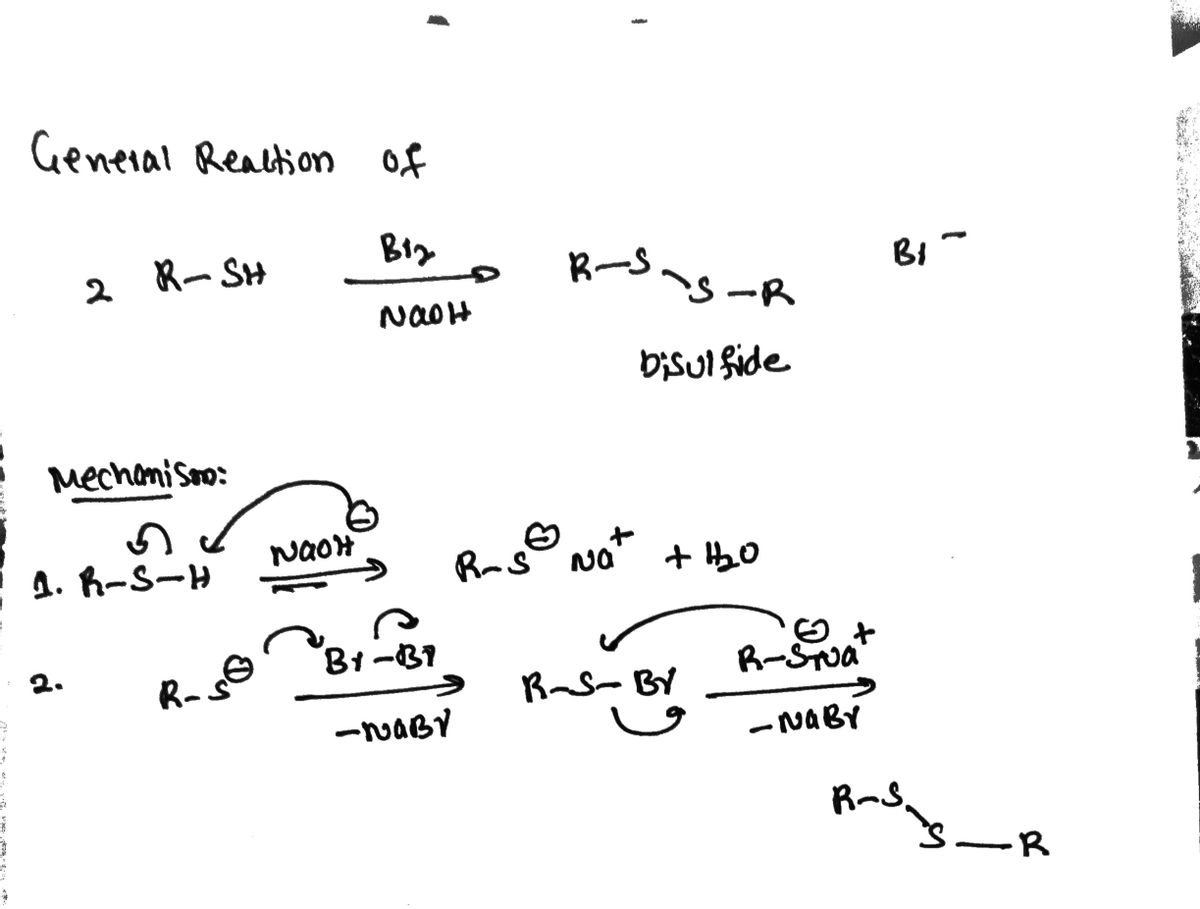 General Reaction of
2 R-SH Br₂ NaOH R-S-S-R Br⁻
Disulfide
Mechanism:
1. R-S-H NaOH ⊖ R-S⊖ Na⁺ + H₂O
2. R-S⊖ Br-Br -NaBr R-S-Br R-S⊖Na⁺ -NaBr
R-S-S-R